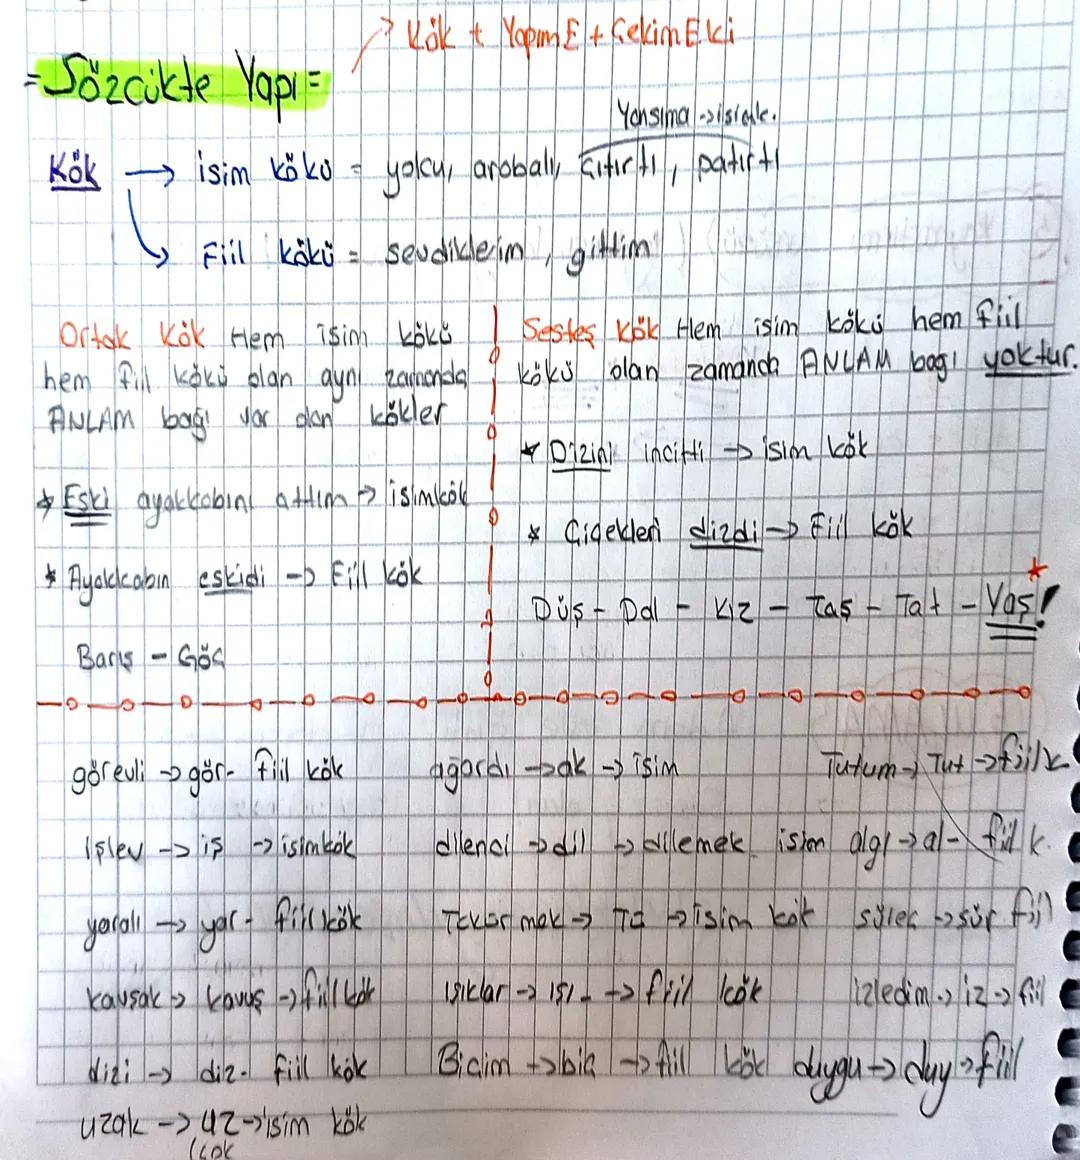 Kök + YapımE + ÇekimEki
= Sözcükte Yapı =
Yansıma -> isimk.
Kök -> isim kökü = yolcu, arabalı, çıtırtı, patırtı
-> Fiil kökü = sevdiklerim, gittim
Ortak Kök Hem isim kökü
hem fiil kökü olan aynı zamanda
ANLAM bağı var olan kökler
* Eski ayakkabını attım -> isimkök
* Ayakkabın eskidi -> Fiil kök
Barış - Göç
Sesteş Kök Hem isim kökü hem fiil
kökü olan zamanda ANLAM bağı yoktur.
* Dizini incitti -> isim kök
* Çiçekleri dizdi -> Fiil kök
Düş - Dal - Kız - Taş - Tat - Yaş!
görevli -> gör- fiil kök
işlev -> iş -> isimkök
yaralı -> yar- fiil kök
kavşak -> kavuş -> fiil kök
dizi -> diz- fiil kök
uzak -> uz -> isim kök
(çok
ağardı -> ak -> isim
dilenci -> dil -> dilemek isim
Tekör mek -> Te -> isim kök
ışıklar -> ışı- -> fiil kök
Biçim -> biç -> fiil kök
Tutum -> Tut -> fiil k
algı -> al- fiil k.
süreç -> sür fiil
izledim -> iz -> fiil
duygu -> duy -> fiil